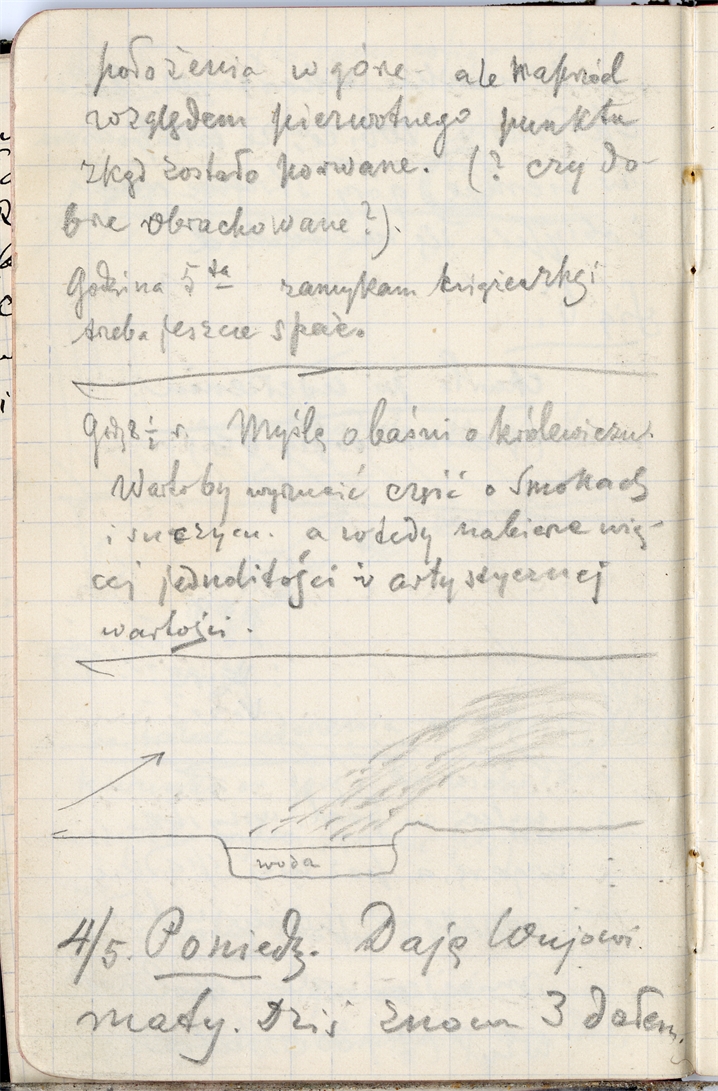 położenia w górę ale naprzód
względem pierwotnego punktu
zkąd zostało porwane. (? czy do-
brze obrachowane?).
Godzina 5ta zamykam książeczkę
trzeba jeszcze spać.
Godz 8 ½ r. Myślę o baśni o królewiczu.
Warto by wyrzucić część o smokach
i a wtedy nabierze wię-
cej jednolitości i artystycznej
wartości.
woda
4/5. Poniedz. Daję Wujowi
maty. Dziś znowu 3 dałem.